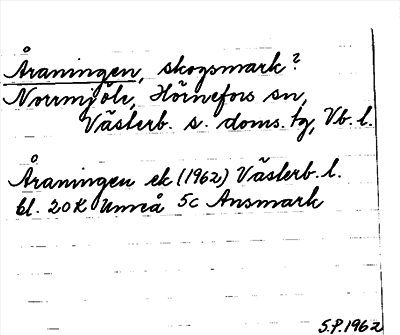 Åraningen, skogsmark?
Norrmjöle, Hörnefors sn,
Västerb. s. doms. tg, Vb. l.
Åraningen ek (1962) Västerb. l.
bl. 20K Umeå 5c Ansmark
S.P. 1962